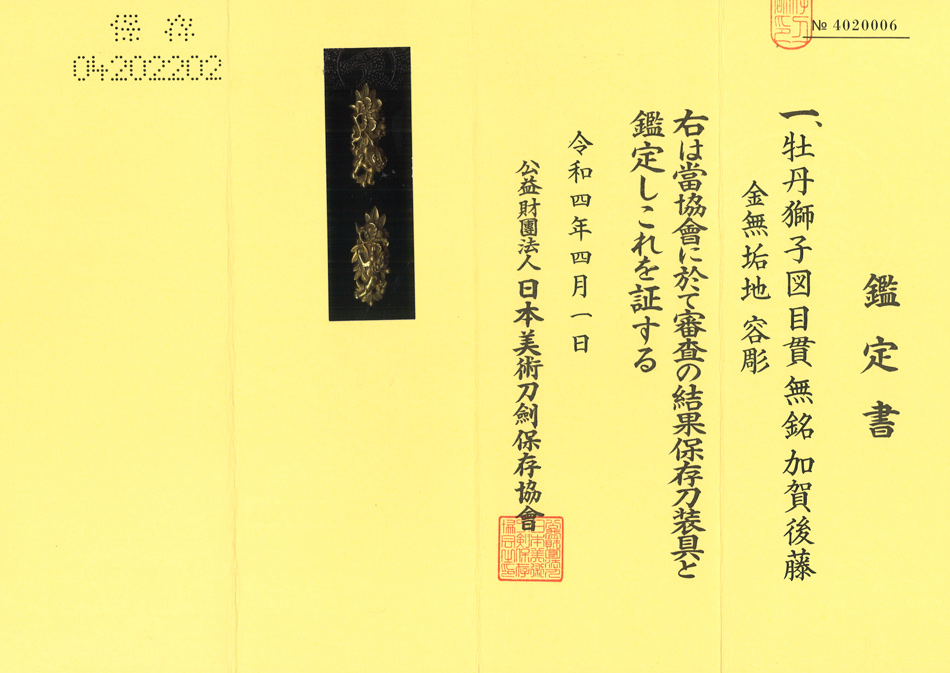 № 4020006
鑑定書
一、牡丹獅子図目貫 無銘 加賀後藤
金無垢地 容彫
右は當協會に於て審査の結果保存刀装具と
鑑定しこれを証する
令和四年四月一日
公益財團法人 日本美術刀劍保存協會
保存
04202202